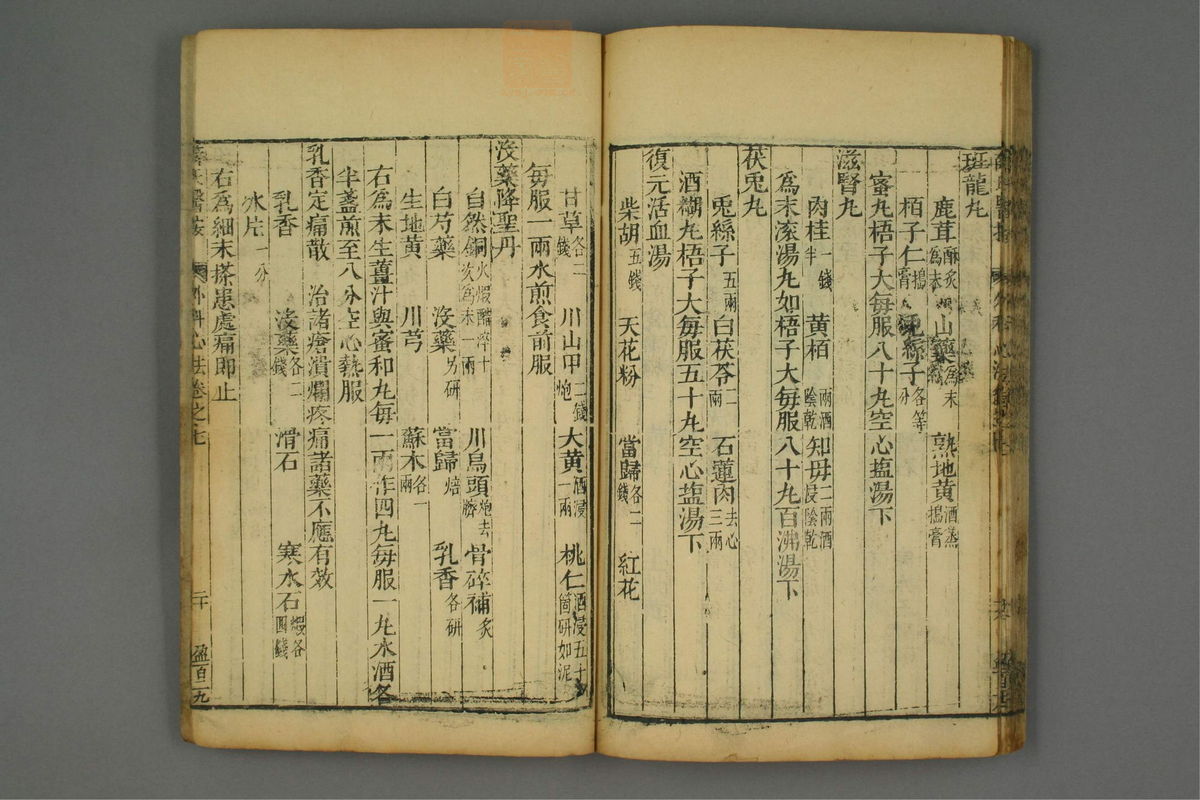 斑龍丸
鹿茸酥炙為末 山藥為末 熟地黄酒蒸搗膏
栢子仁搗 菟絲子各等分
蜜丸梧子大每服八十丸空心塩湯下
滋腎丸
肉桂一錢半 黄栢二兩酒陰乾 知母二兩酒浸陰乾
為末滚湯丸如梧子大每服八十丸百沸湯下
茯兎丸
兎絲子五兩 白茯苓二兩 石蓮肉去心三兩
酒糊丸梧子大每服五十丸空心塩湯下
復元活血湯
柴胡五錢 天花粉 當歸各二錢 紅花
甘草各二錢 川山甲二錢炮 大黄酒浸一兩 桃仁酒浸五十箇研如泥
每服一兩水煎食前服
没藥降聖丹
自然銅火煅醋淬十次為末一兩 川烏頭炮去臍 骨碎補炙
白芍藥 没藥另研 當歸焙 乳香各研
生地黄 川芎 蘇木各一兩
右為末生薑汁與蜜和丸每一兩作四丸每服一丸水酒各
半盞煎至八分空心熱服
乳香定痛散 治諸瘡潰爛疼痛諸藥不應有效
乳香 没藥各二錢 滑石 寒水石煅各四錢
氷片一分
右為細末搽患處痛即止
薛氏醫按 外科心法卷之七 二十 盈百二九